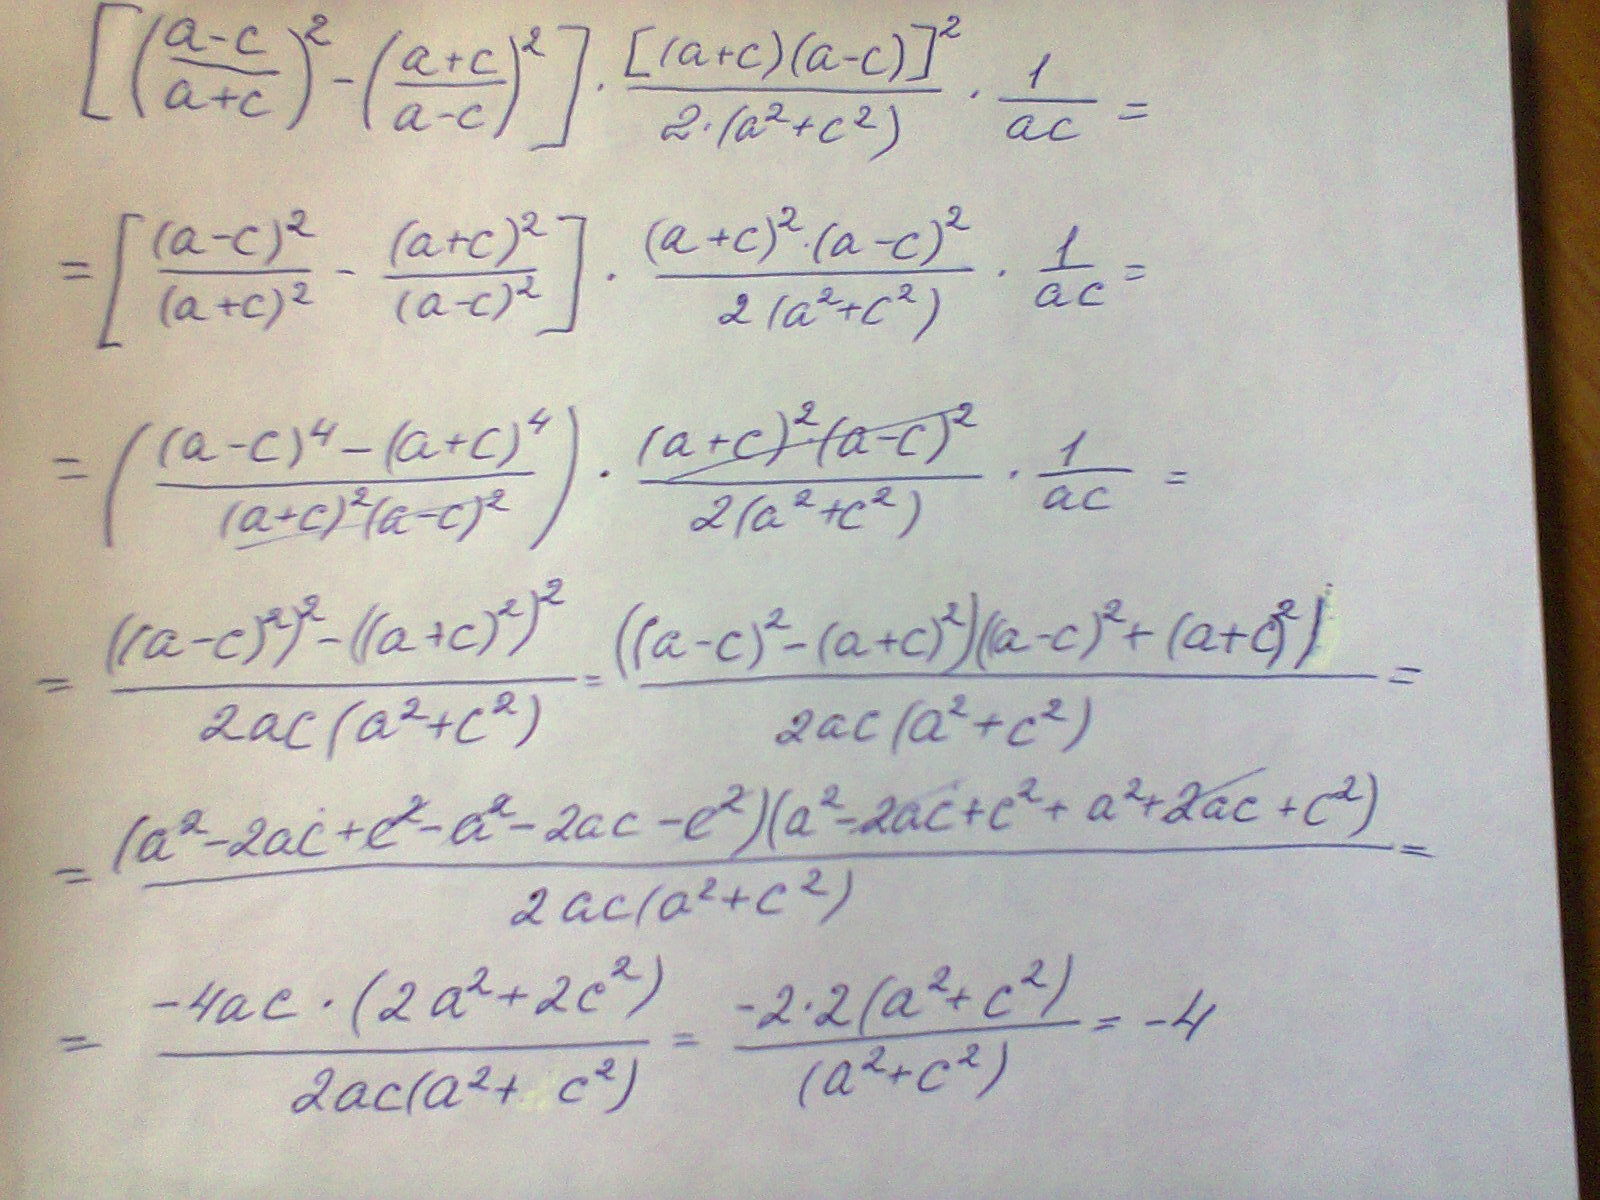 [((a-c)/(a+c))² - ((a+c)/(a-c))²] · [(a+c)(a-c)]²/(2·(a²+c²)) · 1/(ac) =
= [(a-c)²/(a+c)² - (a+c)²/(a-c)²] · (a+c)²·(a-c)²/(2(a²+c²)) · 1/(ac) =
= (((a-c)⁴-(a+c)⁴)/((a+c)²(a-c)²)) · (a+c)²(a-c)²/(2(a²+c²)) · 1/(ac) =
= (((a-c)²)²-((a+c)²)²)/(2ac(a²+c²)) = ((a-c)²-(a+c)²)((a-c)²+(a+c)²)/(2ac(a²+c²)) =
= (a²-2ac+c²-a²-2ac-c²)(a²-2ac+c²+a²+2ac+c²)/(2ac(a²+c²)) =
= -4ac·(2a²+2c²)/(2ac(a²+c²)) = -2·2(a²+c²)/(a²+c²) = -4